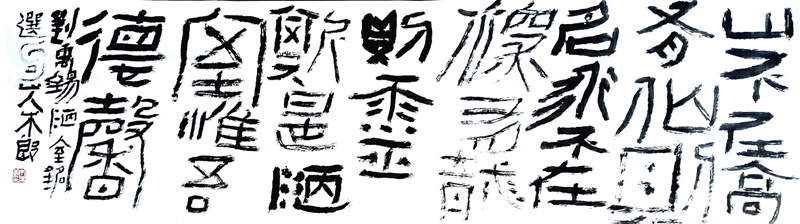 山不在高
有仙則
名水不在
深有龍
則靈
斯是陋
室惟吾
德馨
劉禹錫陋室銘
選句山人木郎